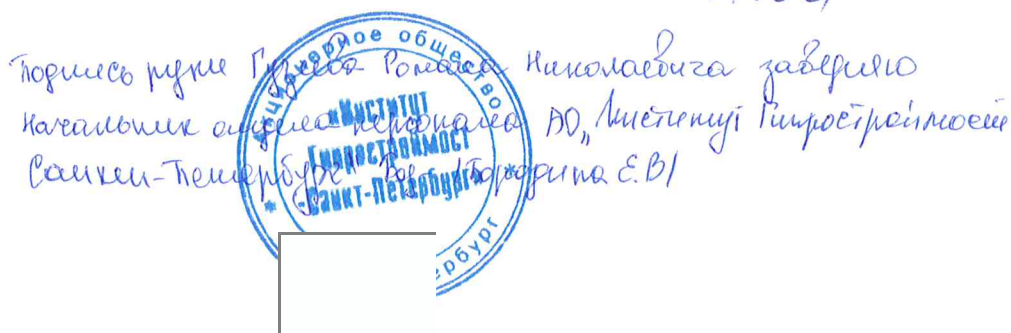 Подпись руки Гузеева Романа Николаевича заверяю
Начальник отдела персонала АО „Институт Гипростроймост
Санкт-Петербург" /Бородина Е.В/
Акционерное общество
«Институт
Гипростроймост
-Санкт-Петербург»